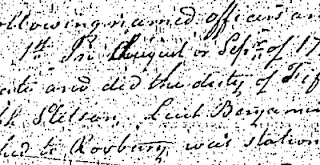 following named officers an
1st Pri August or Sepr of 17
and did the duty of Fif
Stetson. Lieut Benjamin
to Roxbury was station